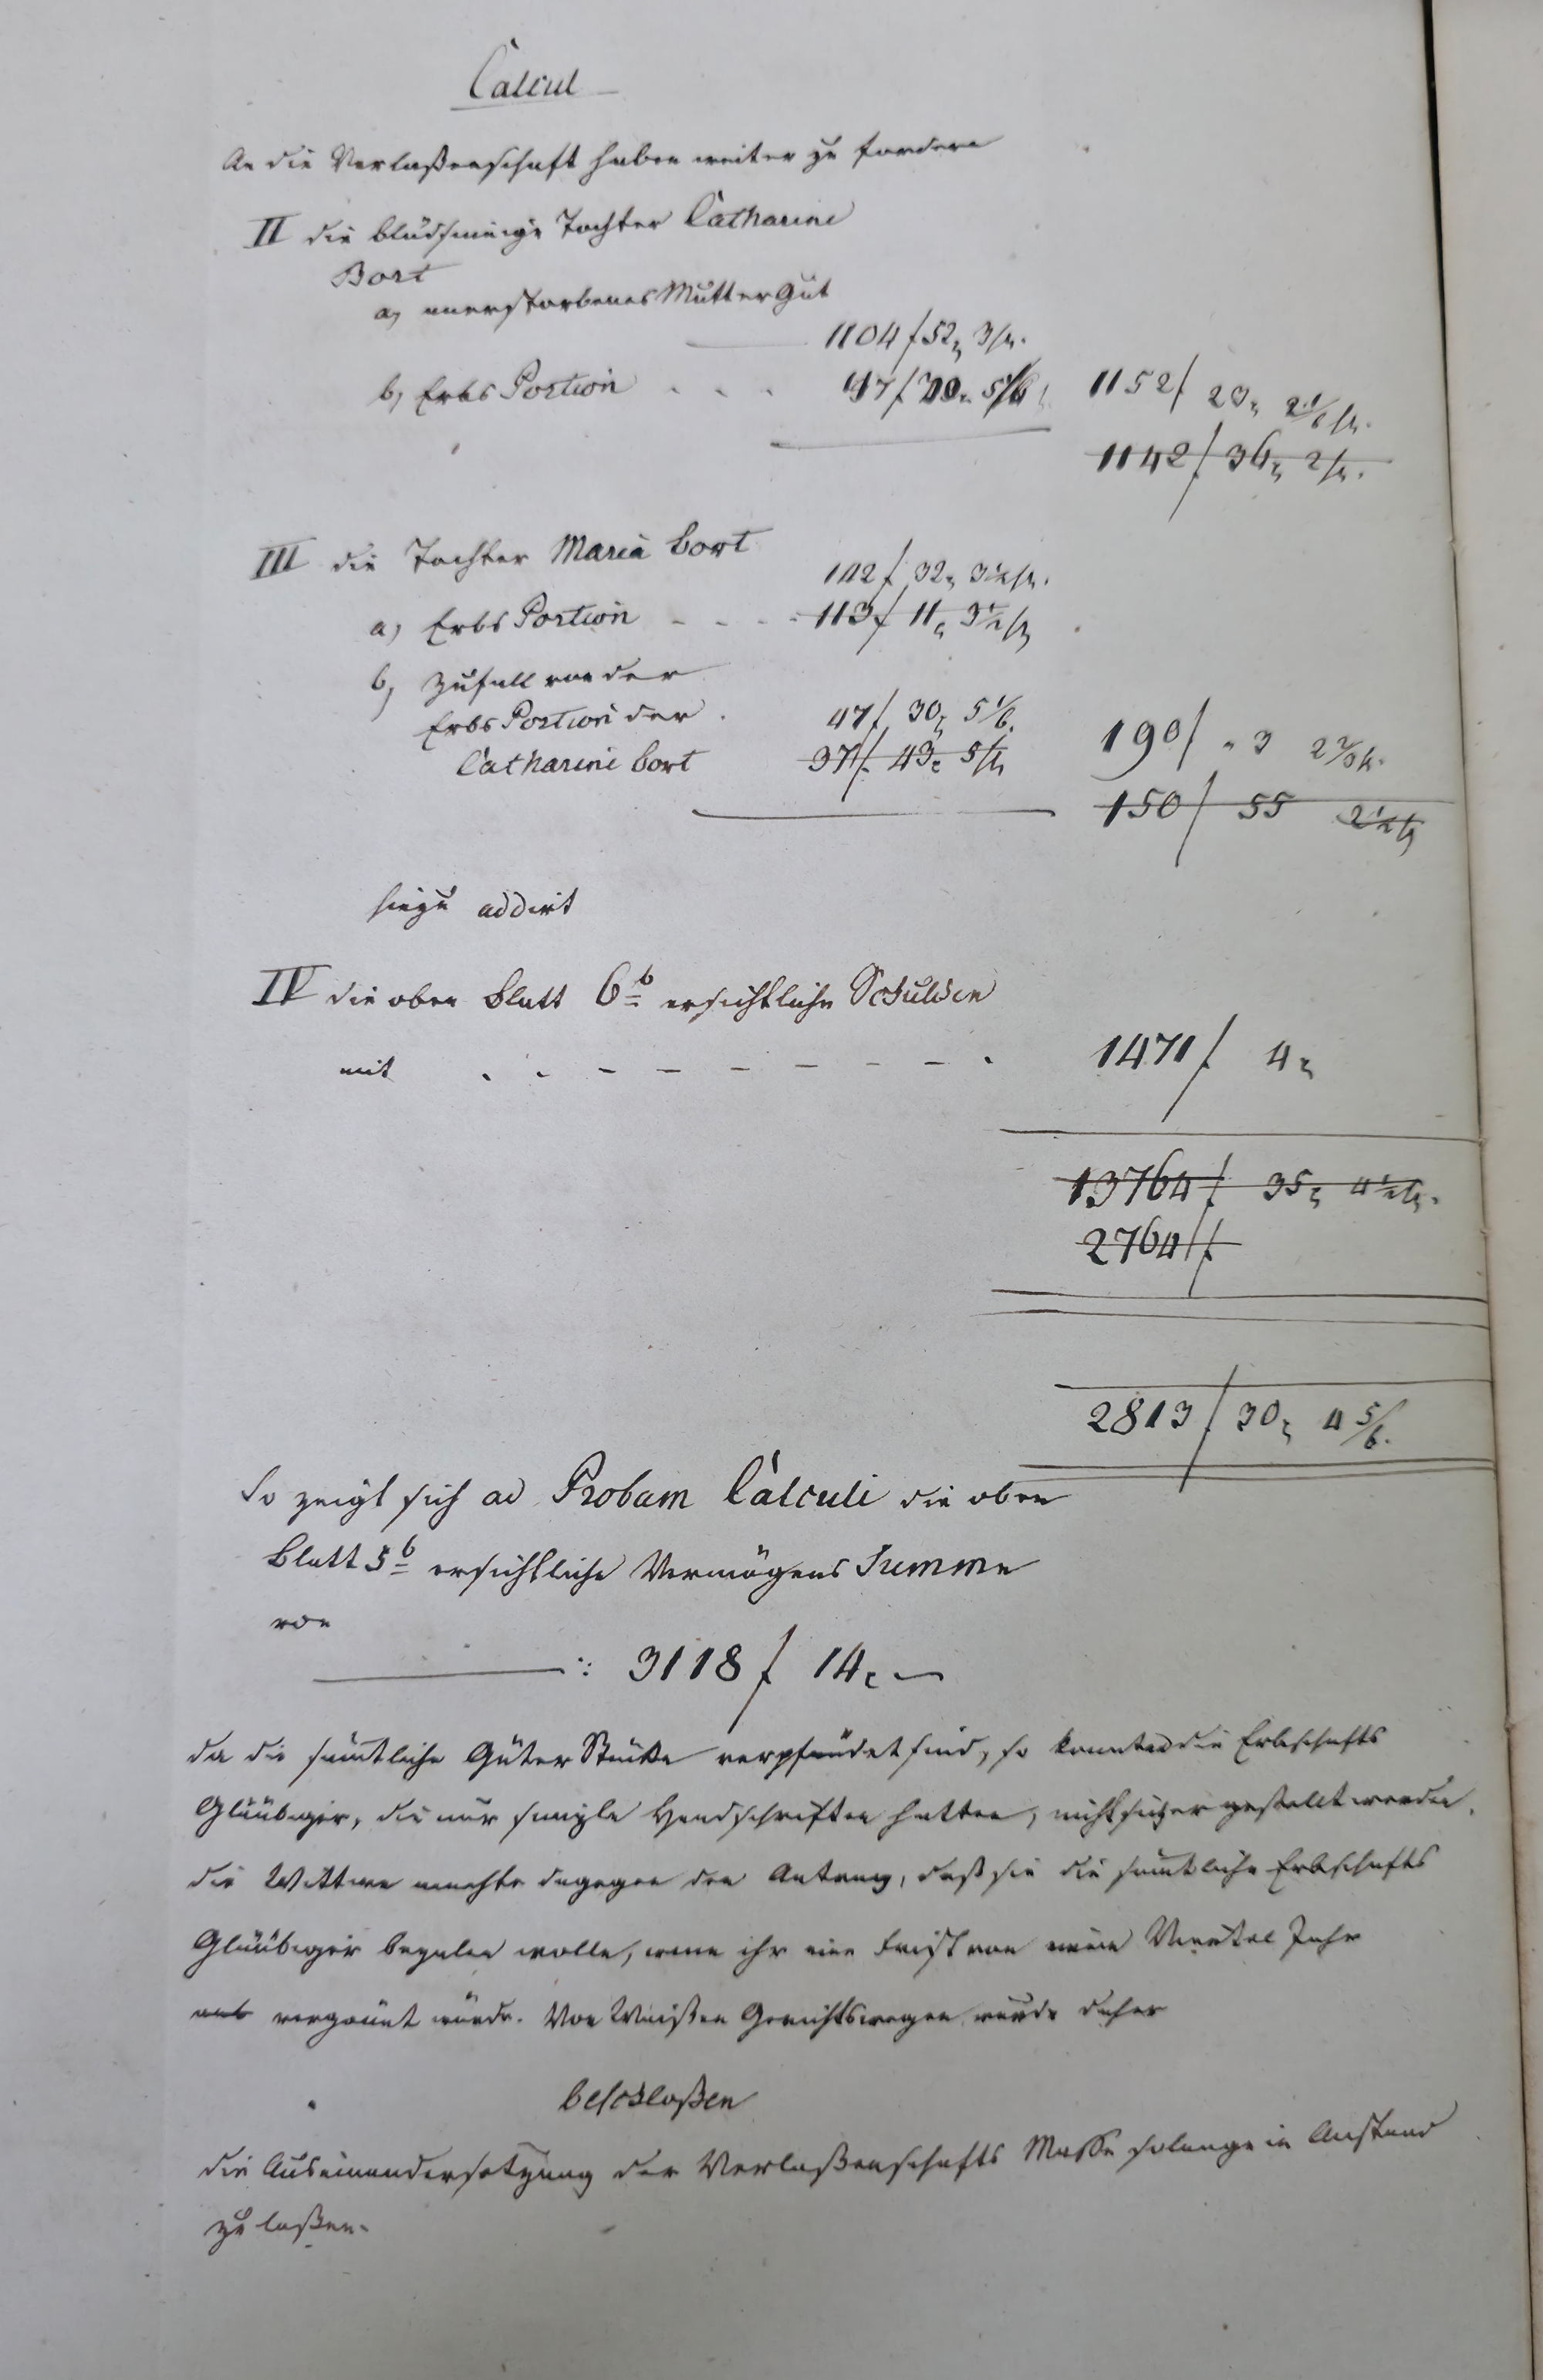 Calcul
An die Verlaßenschaft haben weiter zu fordern
II die blödsinnige Tochter Catharine
Bort
a, anerstorbenes Mutter Gut
1104 f 52, 3 h.
b, Erbs Portion . . . 47 f 30. 5 1/6 1152 f 23, 2 1/6 h.
1142 f 36, 2 h.
III die Tochter Maria Bort
142 f 32, 3 1/2 h.
a, Erbs Portion - - - 113 f 11, 3 1/2 h
b, Zufall von der
Erbs Portion der . 47 f 30, 5 1/6. 190 f " 3 2 2/3 h.
Catharine Bort 37 f 43, 5 h 150 f 55 2 1/2 h
hiezu addirt
IV die oben Blatt 6 b ersichtliche Schulden
mit . . - - - - - - . 1471 f 4,
13764 f 35, 4 1/2 h.
2764 f
2813 f 30, 4 5/6.
So zeigt sich ad Probam Calculi die oben
Blatt 5 b ersichtliche Vermögens Summe
von
3118 f 14, —
da die sämtliche Güter Stücke verpfändet sind, so konnten die Erbschafts
Gläubiger, die nur simple Handschriften hatten, nicht sicher gestellt werden.
die Wittwe machte dagegen den Antrag, daß sie die sämtliche Erbschafts
Gläubiger bezalen wolle, wenn ihr eine Frist von einem Viertel Jahr
vergönnt würde. Von Waisen Gerichtswegen wurde daher
beschloßen
die Auseinandersetzung der Verlaßenschafts Masse solange in Anstand
zu laßen.